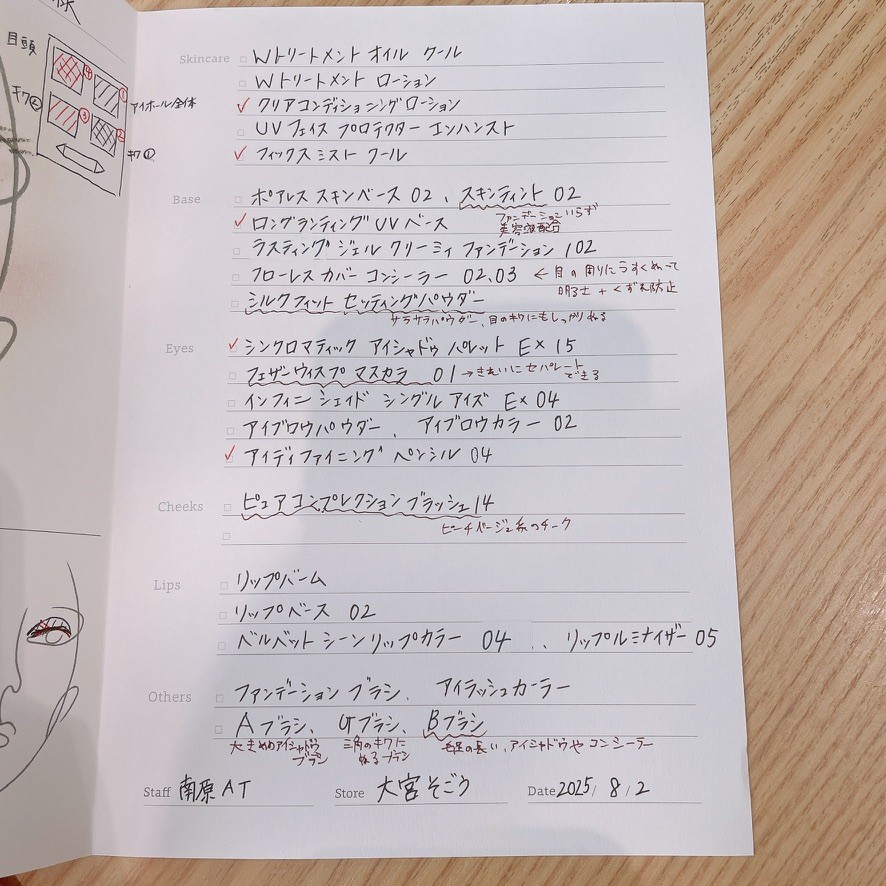 様
目頭
④
①
アイホール全体
キワ②
③
②
キワ①
Skincare
Wトリートメント オイル クール
Wトリートメント ローション
✓ クリアコンディショニングローション
UVフェイス プロテクター エンハンスト
✓ フィックスミスト クール
Base
ポアレス スキンベース 02、スキンティント 02
ファンデーションいらず
美容液配合
✓ ロングランティングUVベース
ラスティング ジェル クリーミィ ファンデーション 102
フローレス カバー コンシーラー 02,03 ← 目の周りにうすくぬって
明るさ + くずれ防止
シルクフィット セッティングパウダー
サラサラパウダー、目のキワにもしっかりぬる
Eyes
✓ シンクロマティック アイシャドウ パレット EX 15
フェザーウィスプ マスカラ 01 →きれいにセパレート
できる
インフィニシェイド シングル アイズ EX 04
アイブロウパウダー、アイブロウカラー 02
✓ アイディファイニング ペンシル 04
Cheeks
ピュアコンプレクション ブラッシュ14
ピーチベージュ系のチーク
Lips
リップバーム
リップベース 02
ベルベット シーン リップカラー 04 、、リップルミナイザー 05
Others
ファンデーション ブラシ、アイラッシュカーラー
Aブラシ、Gブラシ、Bブラシ
大きめのアイシャドウ
ブラシ
三角のキワに
ぬるブラシ
毛足の長い、アイシャドウやコンシーラー
Staff 南原AT Store 大宮そごう Date 2025/ 8 / 2